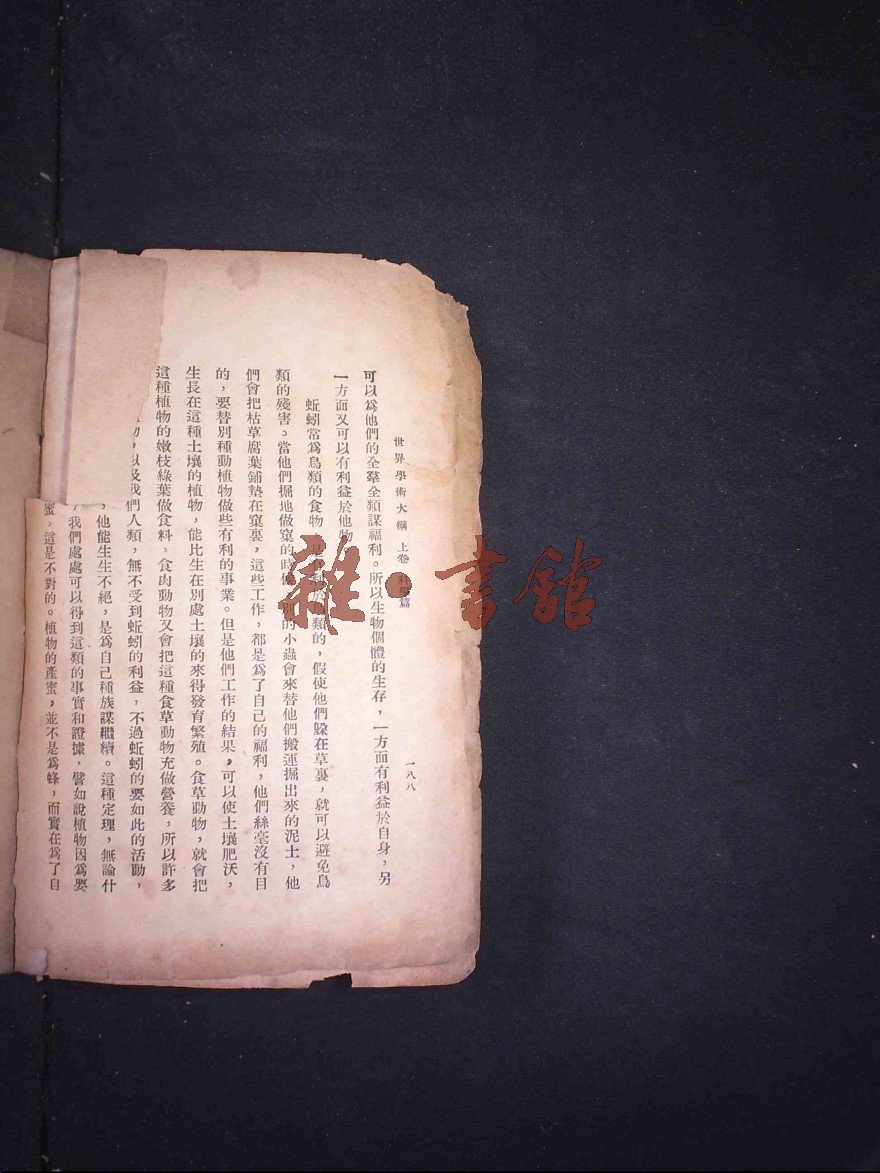 世界學術大綱 上卷 科學篇
一八八
可以爲他們的全羣全類謀福利。所以生物個體的生存，一方面有利益於自身，另
一方面又可以有利益於他物
蚯蚓常爲鳥類的食物，是有利於鳥類的，假使他們躲在草裏，就可以避免鳥
類的殘害。當他們掘地做窠的時候，別的小蟲會來替他們搬運掘出來的泥土，他
們會把枯草腐葉鋪墊在窠裏，這些工作，都是爲了自己的福利，他們絲毫沒有目
的，要替別種動植物做些有利的事業。但是他們工作的結果，可以使土壤肥沃，
生長在這種土壤的植物，能比生在別處土壤的來得發育繁殖。食草動物，就會把
這種植物的嫩枝綠葉做食料，食肉動物又會把這種食草動物充做營養，所以許多
物，以及我們人類，無不受到蚯蚓的利益，不過蚯蚓的要如此的活動，
，他能生生不絕，是爲自己種族謀繼續。這種定理，無論什
我們處處可以得到這類的事實和證據，譬如說植物因爲要
蜜，這是不對的。植物的產蜜，並不是爲蜂，而實在爲了自
雜·書館